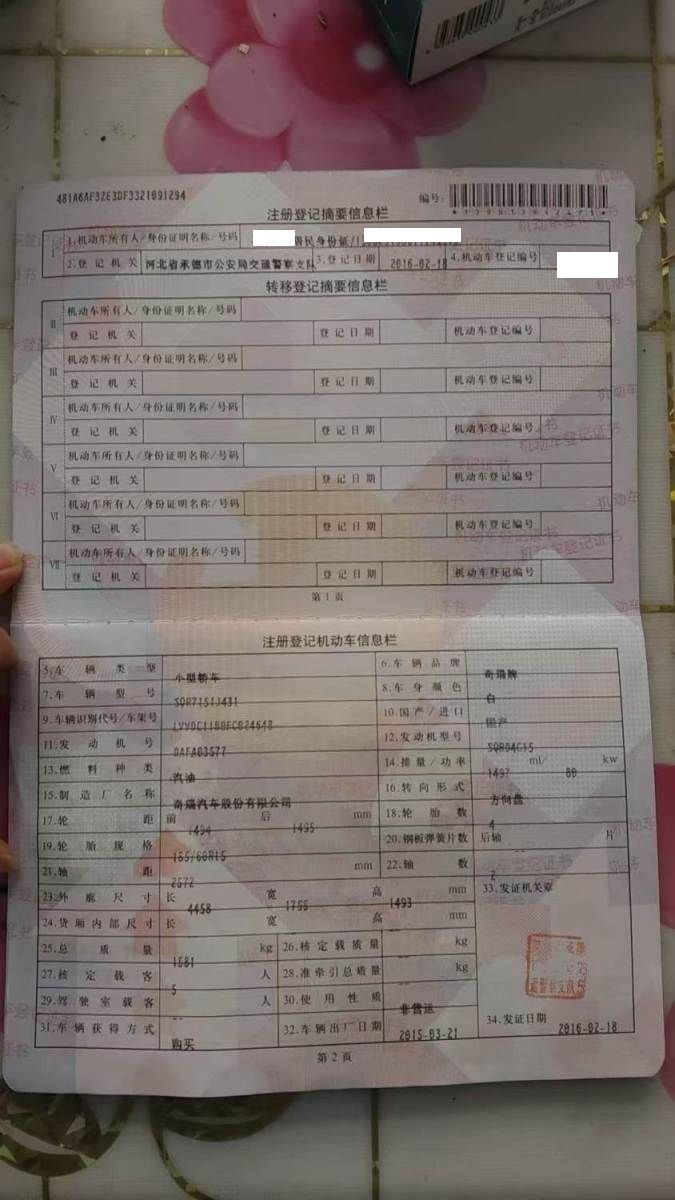 481A6AF32E3DF3321091294
编号:
注册登记摘要信息栏
I 1.机动车所有人/身份证明名称/号码 居民身份证/
2.登记机关 河北省承德市公安局交通警察支队 3.登记日期 2016-02-18 4.机动车登记编号
转移登记摘要信息栏
II 机动车所有人/身份证明名称/号码
登记机关 登记日期 机动车登记编号
III 机动车所有人/身份证明名称/号码
登记机关 登记日期 机动车登记编号
IV 机动车所有人/身份证明名称/号码
登记机关 登记日期 机动车登记编号
V 机动车所有人/身份证明名称/号码
登记机关 登记日期 机动车登记编号
VI 机动车所有人/身份证明名称/号码
登记机关 登记日期 机动车登记编号
VII 机动车所有人/身份证明名称/号码
登记机关 登记日期 机动车登记编号
第1页
注册登记机动车信息栏
5.车辆类型 小型轿车 6.车辆品牌 奇瑞牌
7.车辆型号 SQR7151J431 8.车身颜色 白
9.车辆识别代号/车架号 10.国产/进口 国产
11.发动机号 12.发动机型号 SQRD4G15
13.燃料种类 汽油 14.排量/功率 1497 ml/ 80 kw
15.制造厂名称 奇瑞汽车股份有限公司 16.转向形式 方向盘
17.轮距 前 1494 后 1495 mm 18.轮胎数 4
19.轮胎规格 20.钢板弹簧片数 后轴 -- 片
21.轴距 2572 mm 22.轴数 2
23.外廓尺寸 长 4458 宽 1755 高 1493 mm 33.发证机关章
24.货厢内部尺寸 长 宽 高 mm
25.总质量 1581 kg 26.核定载质量 -- kg
27.核定载客 5 人 28.准牵引总质量 -- kg
29.驾驶室载客 -- 人 30.使用性质 非营运
31.车辆获得方式 购买 32.车辆出厂日期 2015-03-21 34.发证日期 2016-02-18
第2页